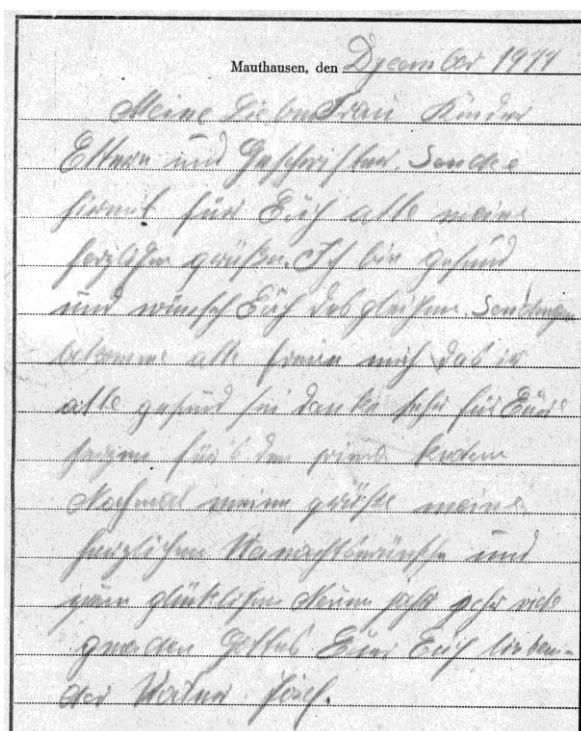 Mauthausen, den Dzember 1944
Meine Lieben Frau Kinder
Eltern und Geschwister. Sende
hirmit für Euch alle meine
herzlichen grüße. Ich bin gesund
und wünsch Euch das gleichen. Sendungen
bekomme alle freue mich das ir
alle gesund sei danke sehr für Eure
für
Nochmal meine grüße meine
herzlichen und
glücklichen Neuen jahr viele
Gottes Euer Euch lieben-
der Vater. Josef.